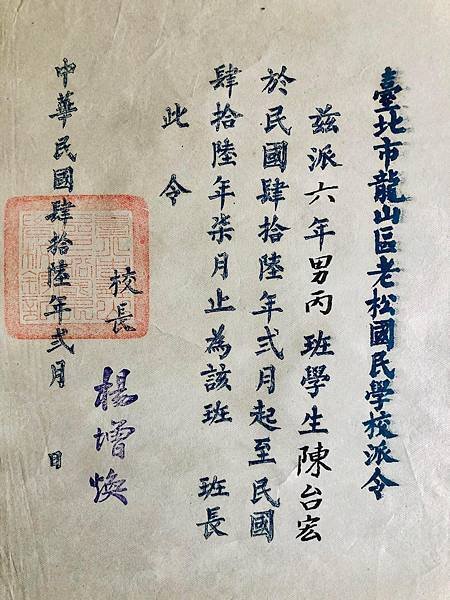 臺北市龍山區老松國民學校派令
茲派六年男丙班學生陳台宏
於民國肆拾陸年弍月起至民國
肆拾陸年柒月止為該班 班長
此令
校長 楊增煥
中華民國肆拾陸年弍月 日